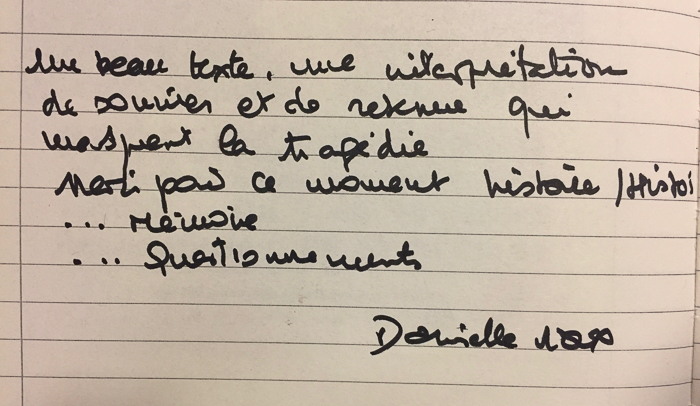 Un beau texte, une interprétation
de sourires et de retenue qui
masquent la tragédie
Merci pour ce moment histoire / Histoi
... Mémoire
... Questionnements
Danielle